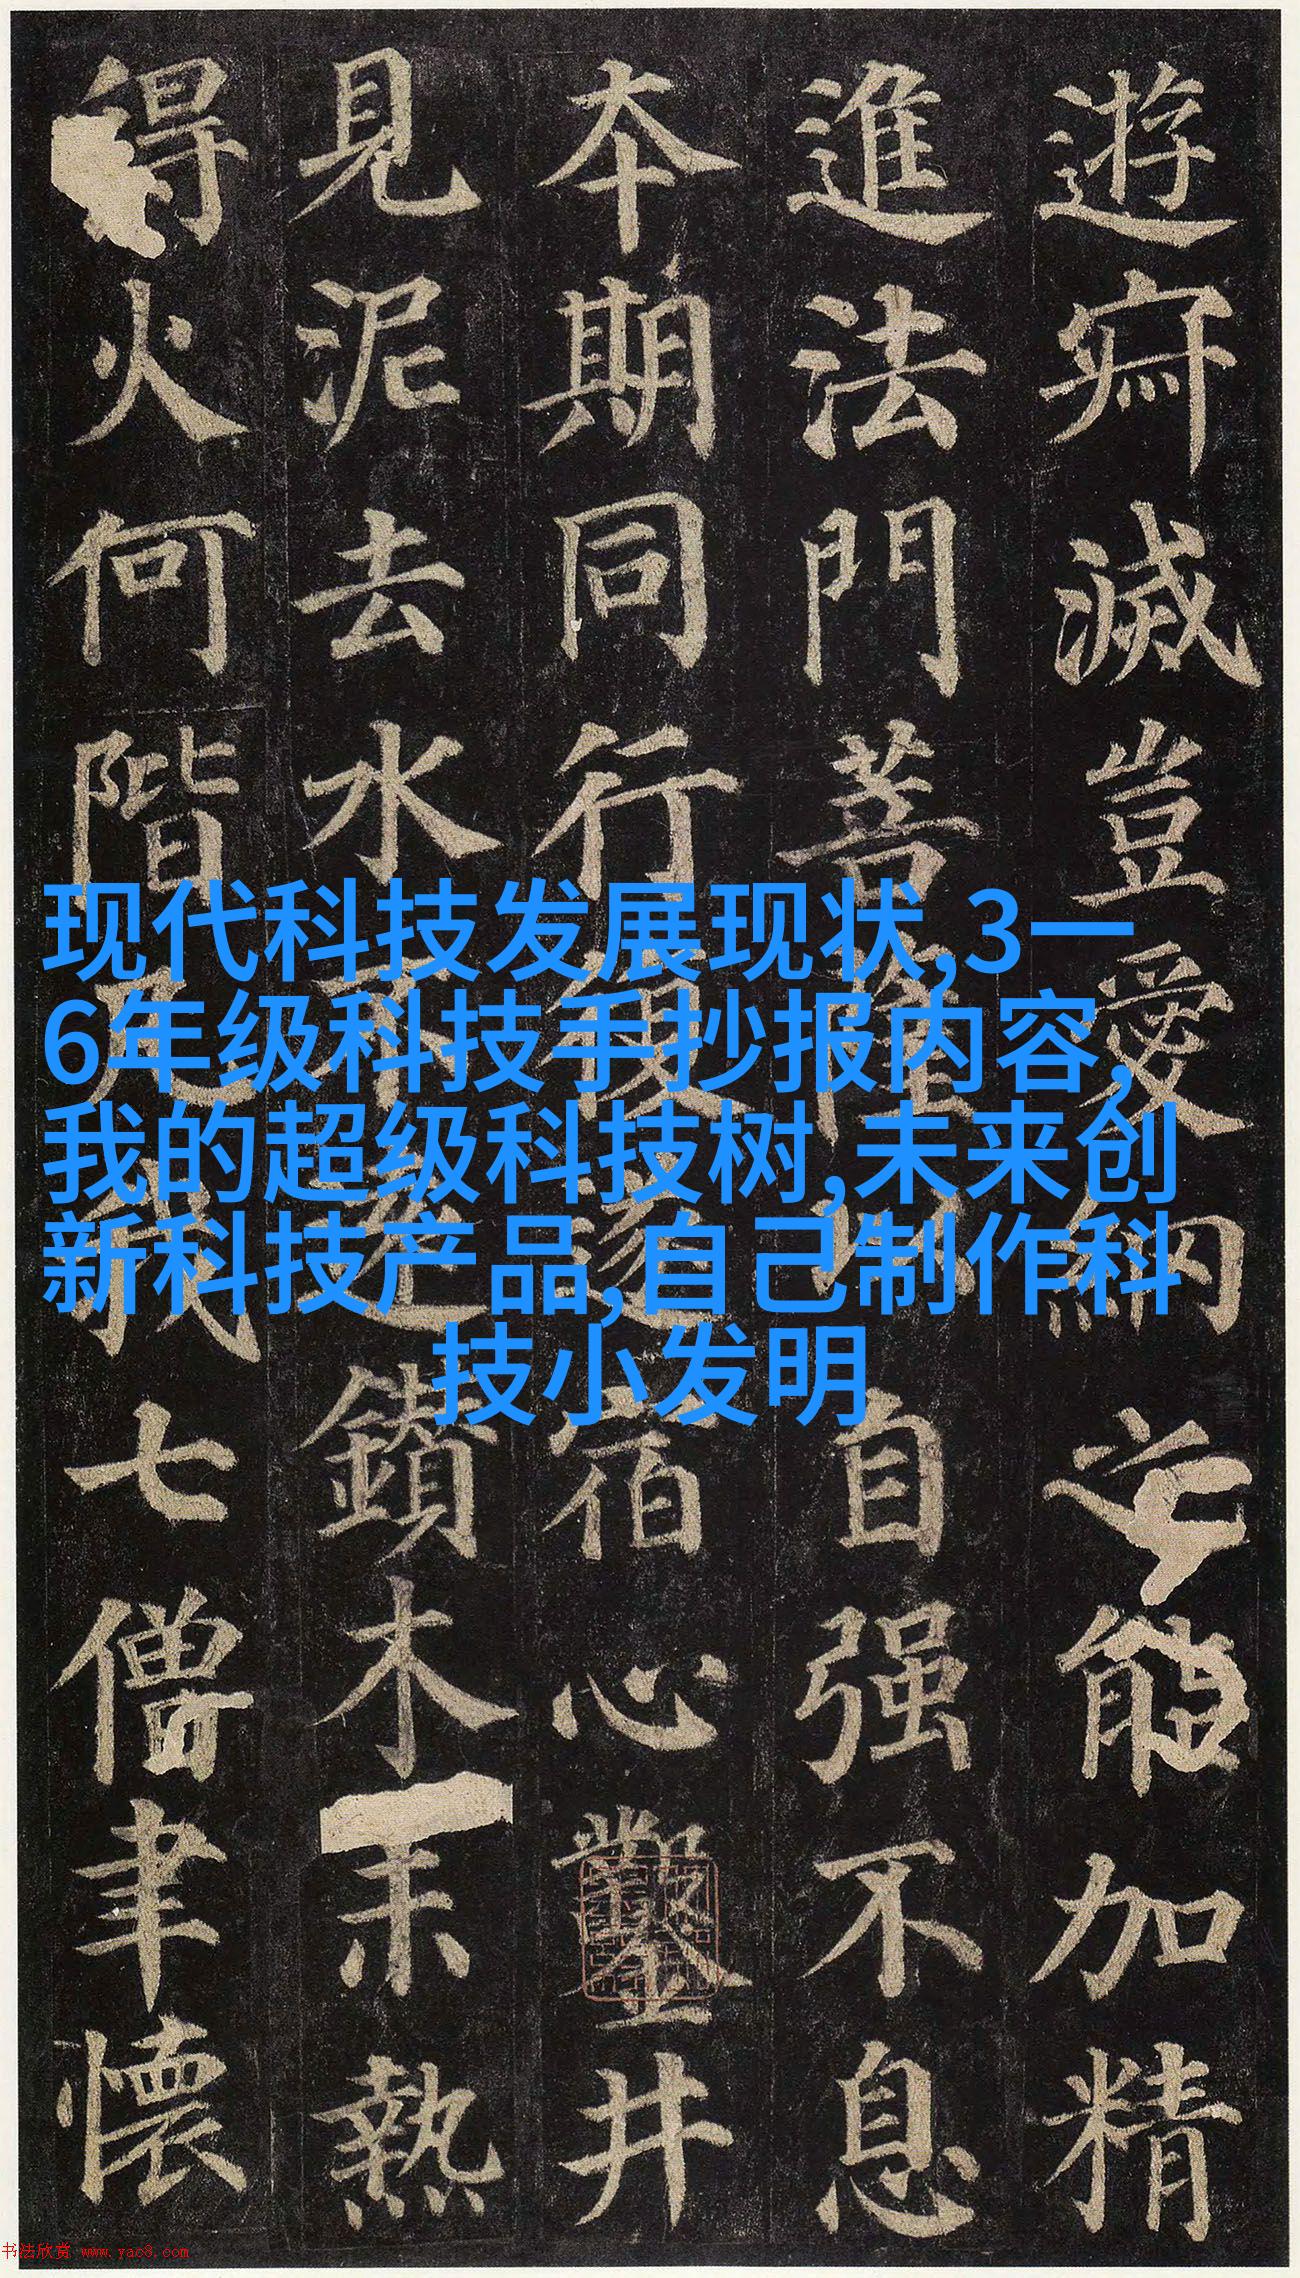 遊寂滅豈愛納之能加精
進法門菩薩以自强不息
本期同行復遂宿心鑿井
見泥去水不遠鑽木未熱
得火何階凡我七僧聿懷
现代科技发展现状,3一
6年级科技手抄报内容,
我的超级科技树,未来创
新科技产品,自己制作科
技小发明
书法欣赏 www.yac8.com